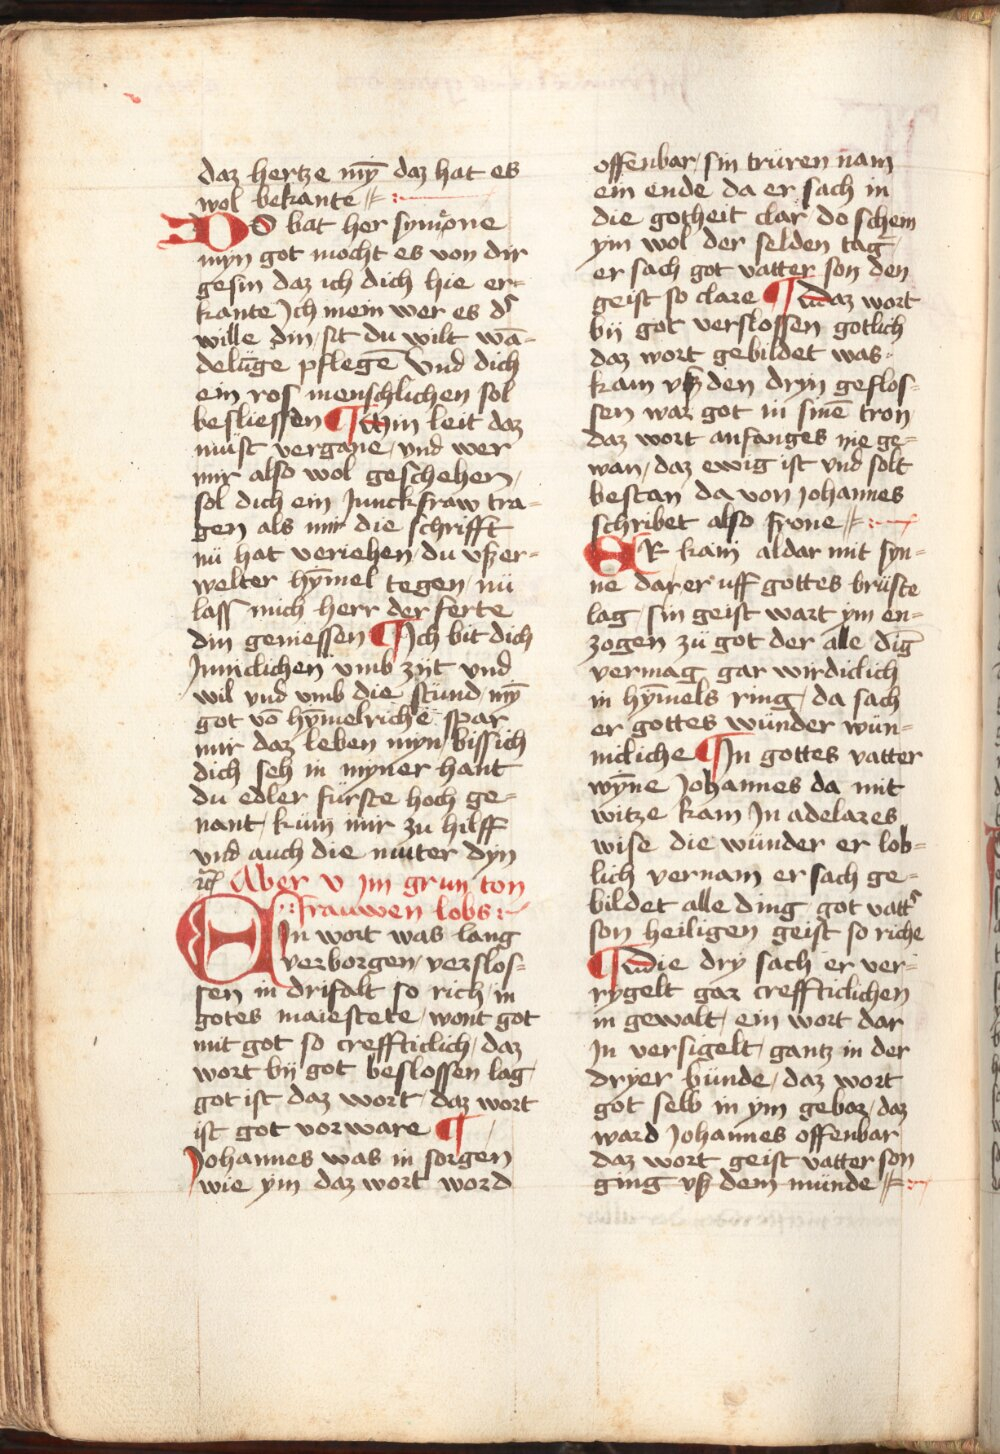 daz hertze mȳ daz hat es
wol bekante
DO bat her symone
myn got mocht es von dir
gesin daz ich dich hie er-
kante Jch mein wer es dˢ
wille din / sit du wilt wā-
delūge pflegē Vnd dich
ein ros menschlichen sol
besliessen ¶ Min leit daz
must vergane / vnd wer
mir also wol geschehen /
sol dich ein Junckfraw tra-
gen als mir die schrifft
nü hat veriehen / du vßer-
welter hȳmel tegen / nü
lass mich herr der ferte
din geniessen ¶ Jch bit dich
Jnniclichen vmb zijt vnd
wil vnd vmb die stünd / mȳ
got vō hȳmelriche spar
mir daz leben myn / bissich
dich seh in myner hant
du edler fürste hoch ge-
nant / küm mir zu hilff
vnd auch die muter dyn
Aber v im grun ton
frauwen lobs
EIn wort was lang
verborgen / verslos-
sen in drifalt so rich / in
gotes maiestete / wont got
mit got so creffticlich / daz
wort bij got beslossen lag /
got ist daz wort / daz wort
ist got vorware ¶
Johannes was in sorgen
wie ym daz wort word
offenbar / sin trüren nam
ein ende da er sach in
die gotheit clar do schem
ym wol der selden tag /
er sach got vatter son den
geist so clare ¶ daz wort
bij got verslossen gotlich
daz wort gebildet was /
kam vß den dryn geflos-
sen waz got in sinē tron
daz wort anfanges nie ge-
wan / daz ewig ist vnd solt
bestan da von Johannes
schribet also frone
ER kam aldar mit syn-
ne dar er uff gottes brüste
lag / sin geist wart ym en-
zogen zü got der alle dīg
vermag gar wirdiclich
in hȳmels ring / da sach
er gottes wünder wün-
niclliche ¶ Jn gottes vatter
wȳne Johannes da mit
witze kam Jn adelares
wise die wünder er lob-
lich vernam er sach ge-
bildet alle ding / got vattˢ
son heiligen geist so riche
¶ die dry sach er ver-
rygelt gar creffticlichen
in gewalt / ein wort dar
Jn versigelt / gantz in der
dryer bünde / daz wort
got selb in ym gebar / daz
ward Johannes offenbar
daz wort geist vatter son
ging vß dem münde